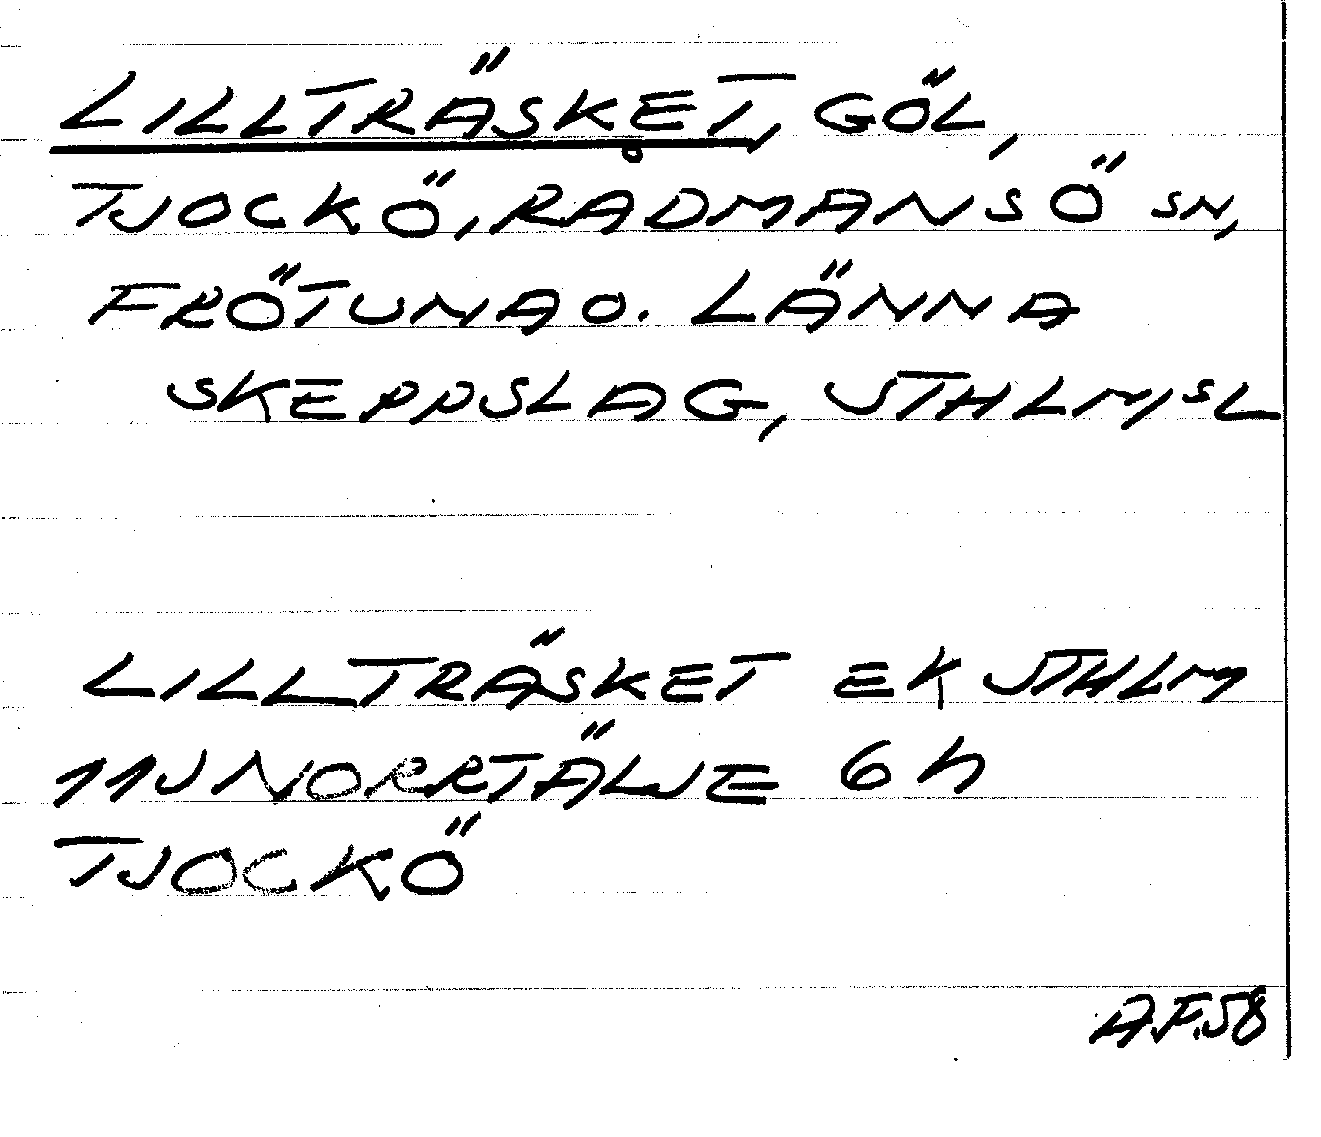 LILLTRÄSKET, GÖL,
TJOCKÖ, RÅDMANSÖ SN,
FRÖTUNA O. LÄNNA
SKEPPSLAG, STHLMSL
LILLTRÄSKET EK STHLM
11J NORRTÄLJE 6h
TJOCKÖ
A.F.58